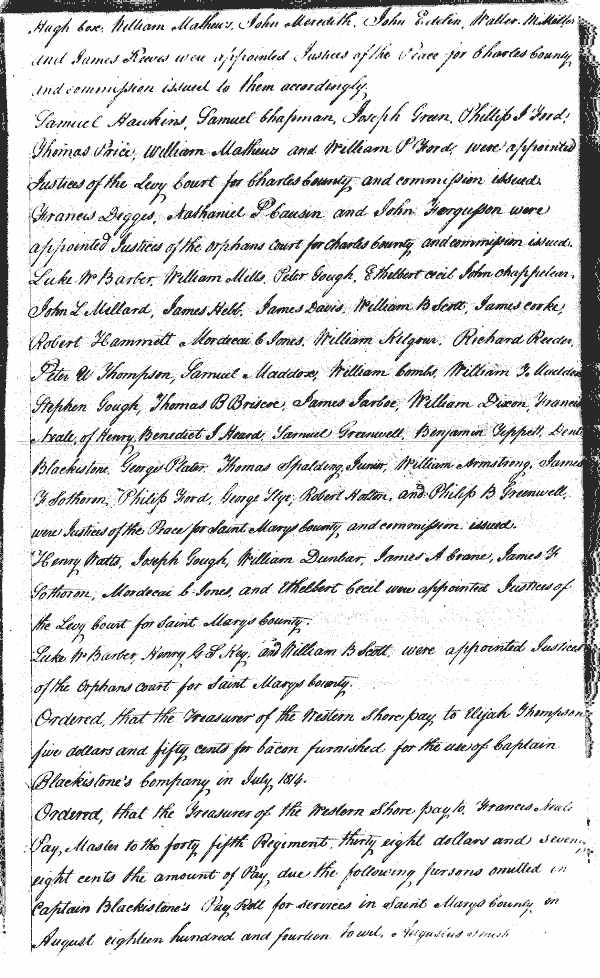 Hugh Cox, William Mathews, John Meredith, John Edelin, Walter
and James Reeves were appointed Justices of the Peace for Charles County
and commission issued to them accordingly,
Samuel Hawkins, Samuel Chapman, Joseph Green, Phillip J Ford,
Thomas Price, William Mathews and William P Ford, were appointed
Justices of the Levy Court for Charles County and commission issued.
Francis Digges, Nathaniel P Causin and John Fergusson were
appointed Justices of the Orphans Court for Charles County and commission issued.
Luke W Barber, William Mills, Peter Gough, Ethelbert Cecil John Chappelear,
John L Millard, James Hebb, James Davis, William B Scott, James Cooke,
Robert Hammett Mordecai C Jones, William Kilgour, Richard Reeder,
Peter U Thompson, Samuel Maddox, William Combs, William F Maddox
Stephen Gough, Thomas B Briscoe, James Jarboe, William Dixon, Francis
Neale, of Henry, Benedict I Heard, Samuel Greenwell, Benjamin Tippett, Dent
Blackistone, George Plater, Thomas Spalding, Junior, William Armstrong, James
F Sothoron, Philip Ford, George Slye, Robert Holton, and Philip B Greenwell,
were Justices of the Peace for Saint Marys County and commission issued.
Henry Watts, Joseph Gough, William Dunbar, James A Crane, James F
Sothoron, Mordecai C Jones, and Ethelbert Cecil were appointed Justices of
the Levy Court for Saint Marys County.
Luke W Barber, Henry G S Key, and William B Scott were appointed Justices
of the Orphans Court for Saint Marys County.
Ordered, that the Treasurer of the Western Shore pay to Elijah Thompson
five dollars and fifty cents for bacon furnished for the use of Captain
Blackistone's Company in July 1814.
Ordered, that the Treasurer of the Western Shore pay to Francis Neale
Pay Master to the forty fifth Regiment thirty eight dollars and seventy
eight cents the amount of Pay, due the following persons omitted in
Captain Blackistone's Pay Roll for services in Saint Marys County in
August eighteen hundred and fourteen to wit, Augustus